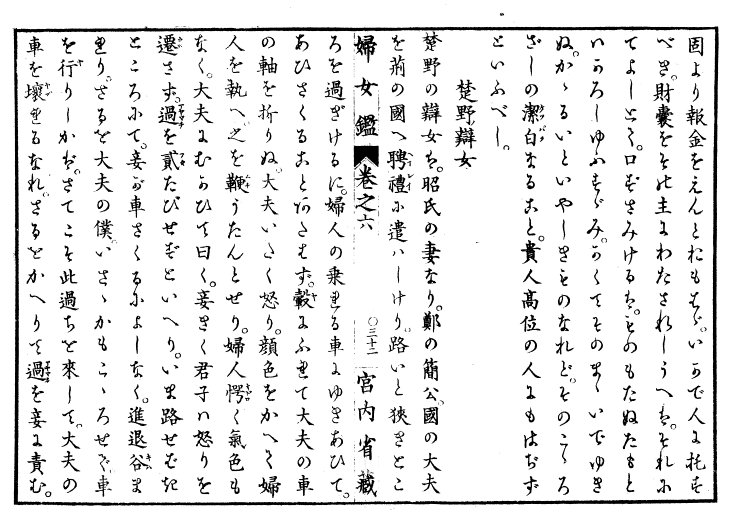 固より報金をえんとにもあらず。いかで人に托す
べき。財囊をその主にわたされしうへは。それに
てよしとて。口ずさみけるは。そのもたぬたもと
いかろしゆふすゞみ。かくてそのまゝいでゆき
ぬ。かゝるいといやしきものなれど。そのこゝろ
ざしの潔白なること。貴人高位の人にもはぢず
といふべし。
楚野辯女
楚野の辯女は。昭氏の妻なり。鄭の簡公。國の大夫
を荊の國へ聘禮に遣ハしけり。路いと狹きとこ
婦女鑑 卷之六 〇三十二 宮内省藏
ろを過ぎけるに。婦人の乗れる車にゆきあひて。
あひさくることあたはず。轂にふれて大夫の車
の軸を折りぬ。大夫いたく怒り。顔色をかへて婦
人を執へ之を鞭うたんとせり。婦人愕く氣色も
なく。大夫にむかひて曰く。妾きく君子ハ怒りを
遷さず。過を貳たびせずといへり。いま路せまき
ところにて。妾が車さくるによしなく。進退谷ま
れり。さるを大夫の僕。いさゝかもこゝろせず。車
を行りしかば。さてこそ此過ちを來して。大夫の
車を壞るなれ。さるをかへりて過を妾に責む。